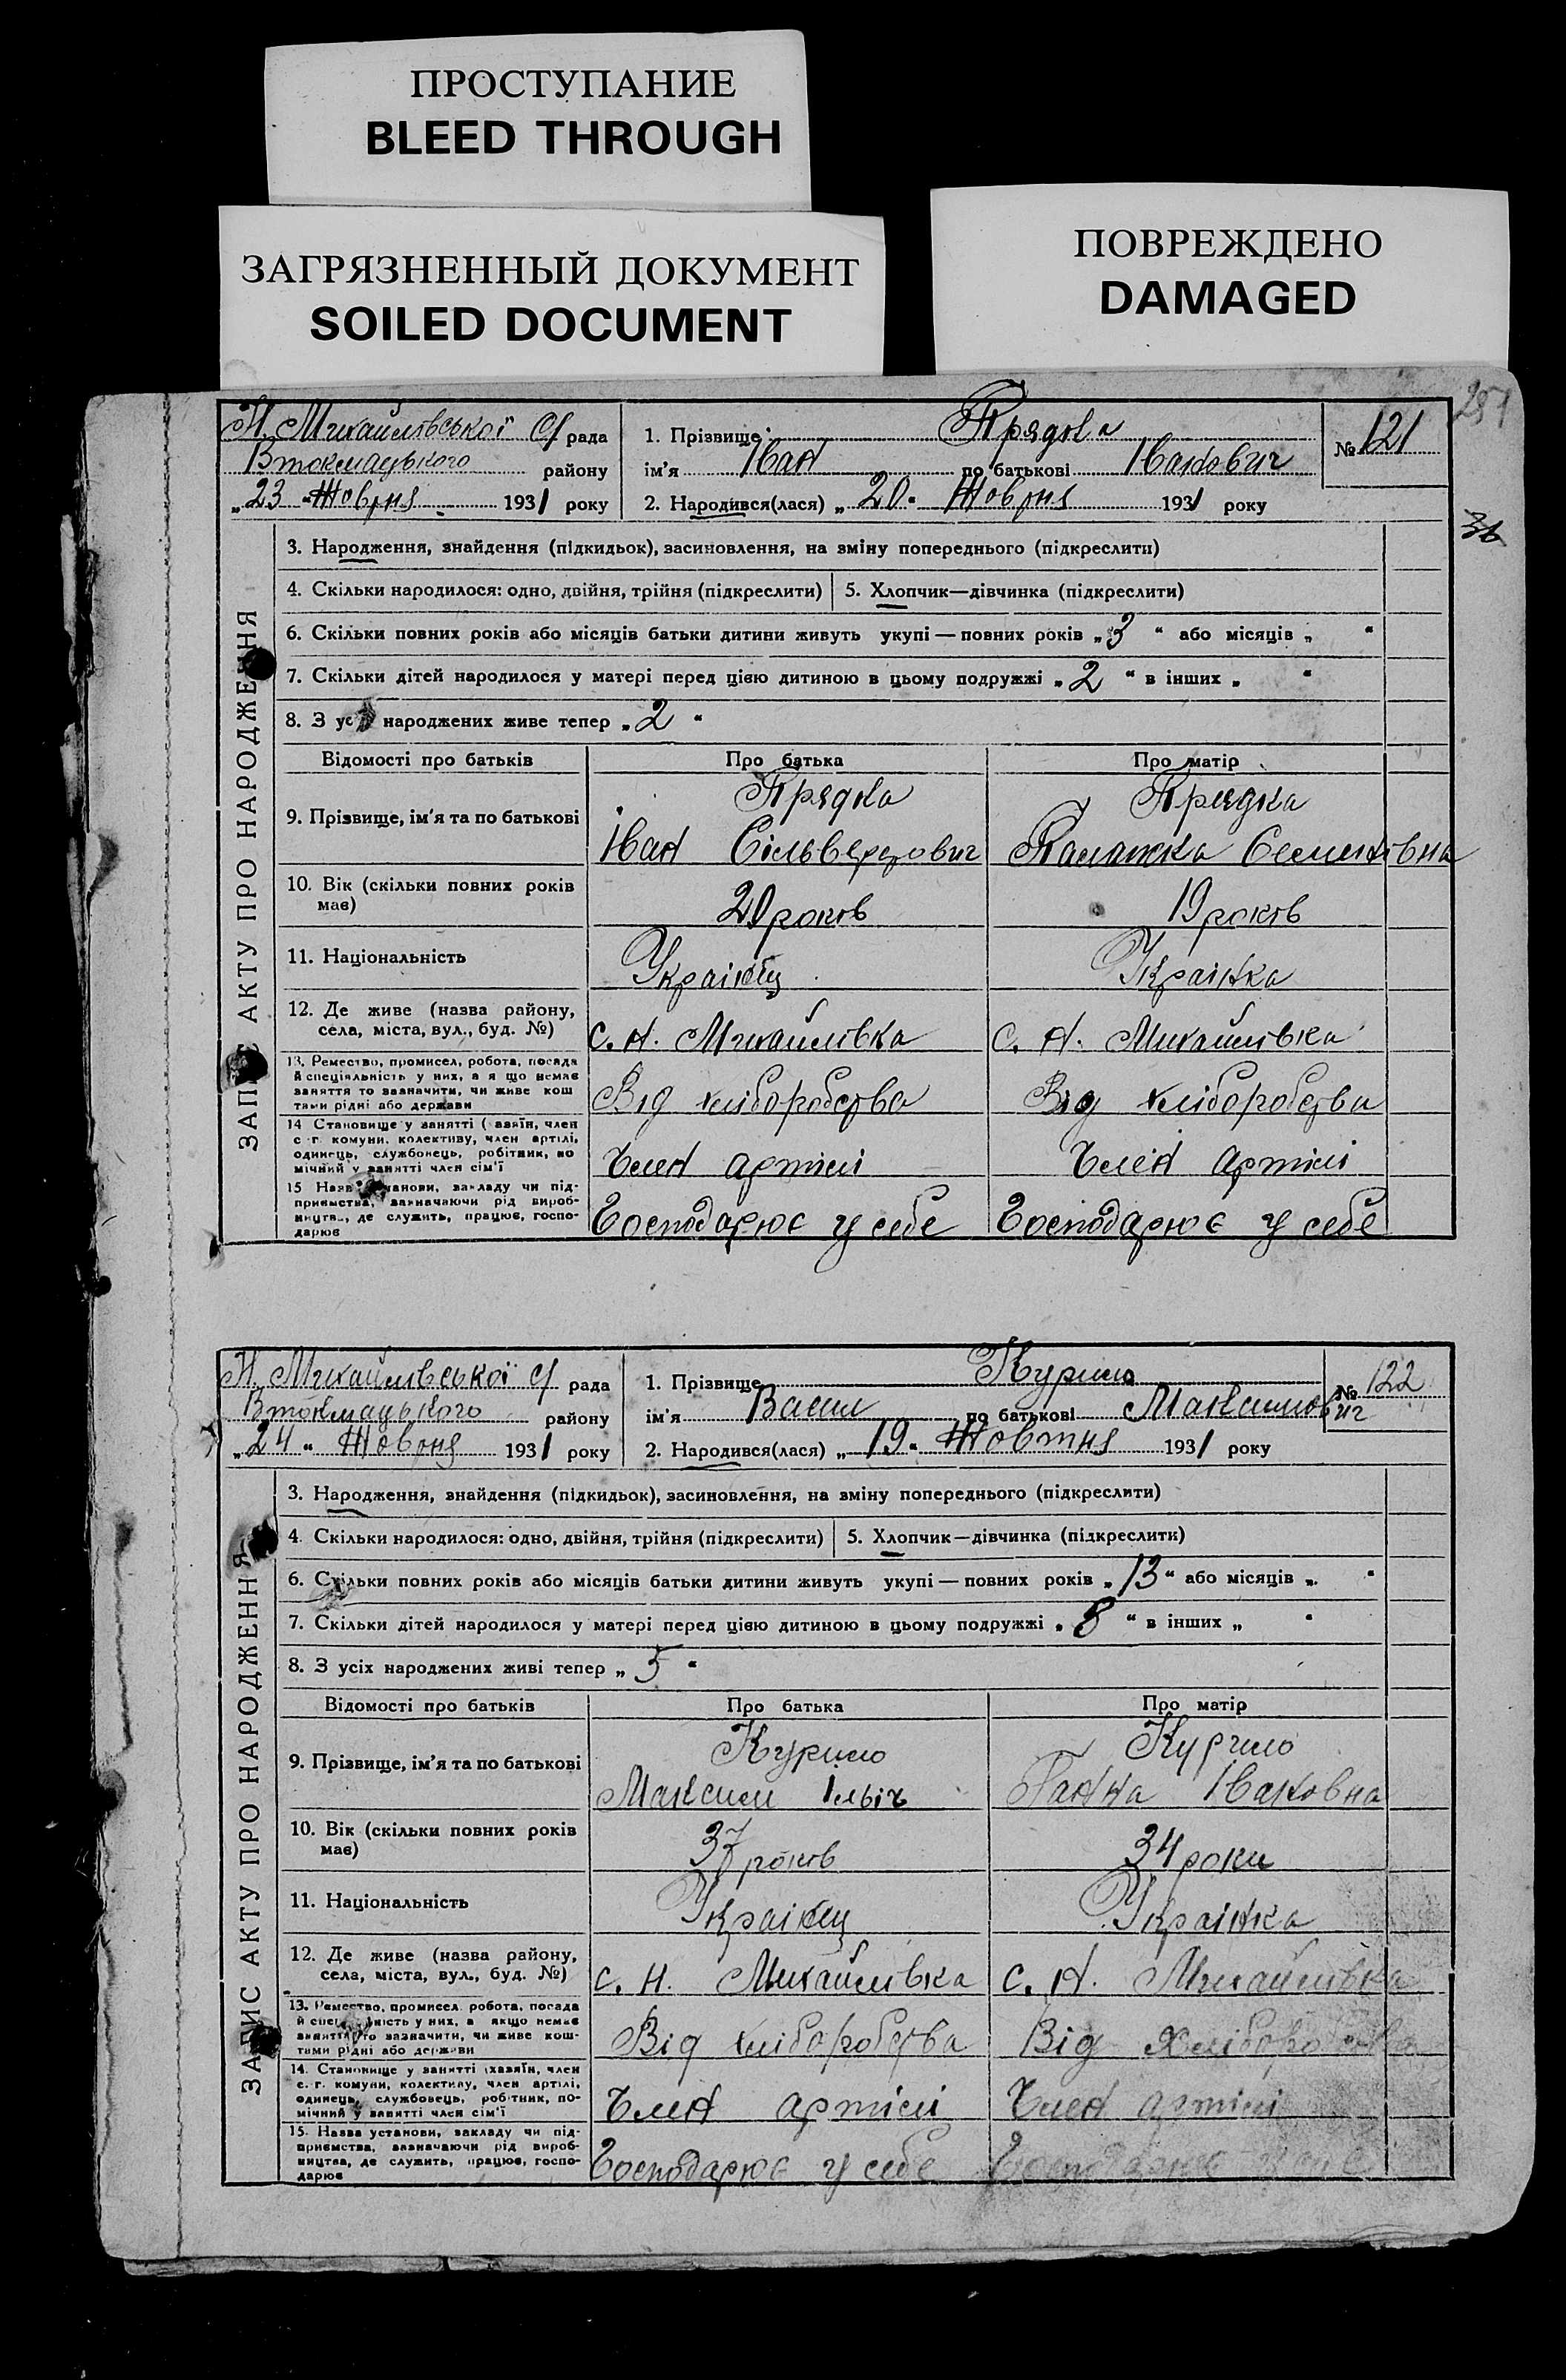 ПРОСТУПАНИЕ
BLEED THROUGH
ЗАГРЯЗНЕННЫЙ ДОКУМЕНТ
SOILED DOCUMENT
ПОВРЕЖДЕНО
DAMAGED
257
Н. Михайлівської с/рада
Втокмацького району
„23 " Жовтня 1931 року
1. Прізвище Прядка
ім'я Іван по батькові Іванович
2. Народився(лася) „20" Жовтня 1931 року
№ 121
36
ЗАПИС АКТУ ПРО НАРОДЖЕННЯ
3. Народження, знайдення (підкидьок), засиновлення, на зміну попереднього (підкреслити)
4. Скільки народилося: одно, двійня, трійня (підкреслити) 5. Хлопчик—дівчинка (підкреслити)
6. Скільки повних років або місяців батьки дитини живуть укупі — повних років „ 3 " або місяців „ "
7. Скільки дітей народилося у матері перед цією дитиною в цьому подружжі „ 2 " в інших „ "
8. З усіх народжених живе тепер „ 2 "
Відомості про батьків Про батька Про матір
9. Прізвище, ім'я та по батькові
Прядка Прядка
Іван Сільверстович Палажка Семенівна
10. Вік (скільки повних років
має)
20 років 19 років
11. Національність
Українец Українка
12. Де живе (назва району,
села, міста, вул., буд. №)
с. Н. Михайлівка с. Н. Михайлівка
13. Ремество, промисел, робота, посада
й спеціяльність у них, а я що немає
заняття то зазначити, чи живе кош
тами рідні або держави
Від хліборобства Від хліборобства
14 Становище у занятті ( азяїн, член
с г. комуни. колективу, член артілі,
одинець, службовець, робітник, по
мічний у занятті член сім'ї
Член артілі Член артілі
15 Назва установи, закладу чи під-
приємства, зазначаючи рід вироб-
ництв., де служить, працює, госпо-
дарює
Господарює у себе Господарює у себе
Н. Михайлівської с/ рада
Втокмацького району
„24 " Жовтня 1931 року
1. Прізвище Курило
ім'я Васил по батькові Максимович
2. Народився(лася) „19" Жовтня 1931 року
№ 122
ЗАПИС АКТУ ПРО НАРОДЖЕННЯ
3. Народження, знайдення (підкидьок), засиновлення, на зміну попереднього (підкреслити)
4. Скільки народилося: одно, двійня, трійня (підкреслити) 5. Хлопчик—дівчинка (підкреслити)
6. Скільки повних років або місяців батьки дитини живуть укупі — повних років „ 13 " або місяців „ "
7. Скільки дітей народилося у матері перед цією дитиною в цьому подружжі „ 8 " в інших „ "
8. З усіх народжених живі тепер „ 5 "
Відомості про батьків Про батька Про матір
9. Прізвище, ім'я та по батькові
Курило Курило
Максим Ільіч Ганна Івановна
10. Вік (скільки повних років
має)
37 років 34 роки
11. Національність
Українец Українка
12. Де живе (назва району,
села, міста, вул., буд. №)
с. Н. Михайлівка с. Н. Михайлівка
13. Ремество, промисел робота, посада
й спеціяльність у них, а якщо немає
заняття то зазначити, чи живе кош-
тами рідні або держави
Від хліборобства Від хліборобства
14. Становище у занятті (хазяїн, член
с. г. комуни, колективу, член артілі,
одинець, службовець, робітник, по-
мічний у занятті член сім'ї
Член артілі Член артілі
15. Назва установи, закладу чи під-
приємства, зазначаючи рід вироб-
ництва, де служить, працює, госпо-
дарює
Господарює у себе Господарює у себе